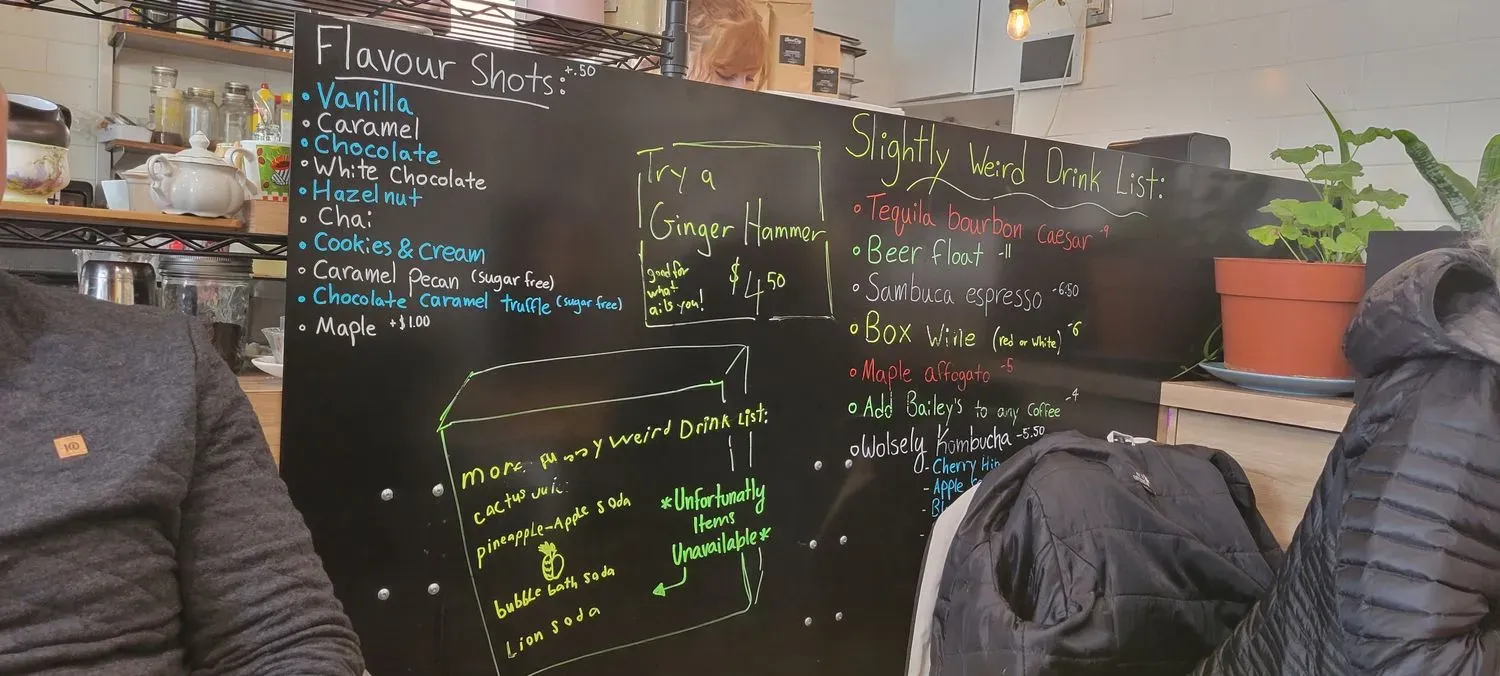 Flavour Shots: +.50
Vanilla
Caramel
Chocolate
White Chocolate
Hazelnut
Chai
Cookies & Cream
Caramel Pecan (sugar free)
Chocolate Caramel Truffle (sugar free)
Maple +$1.00
Try a
Ginger Hammer
good for
what
ails you!
$4.50
more weird Drink List:
cactus
pineapple-Apple soda
bubble bath soda
Lion soda
*Unfortunatly
Items
Unavailable*
Slightly Weird Drink List:
Tequila bourbon caesar -9
Beer float -11
Sambuca espresso -6.50
Box Wine (red or white) -6
Maple affogato -5
Add Bailey's to any Coffee -4
Wolsely Kombucha -5.50
- Cherry
- Apple